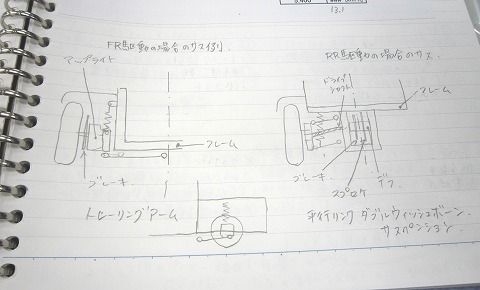 13.1
FR駆動の場合のサス例.
RR駆動の場合のサス.
アップライト
ドライブ
シャフト
フレーム
フレーム
ブレーキ
ブレーキ
デフ
スプロケ
トレーリングアーム
ダブルウィッシュボーン
サスペンション